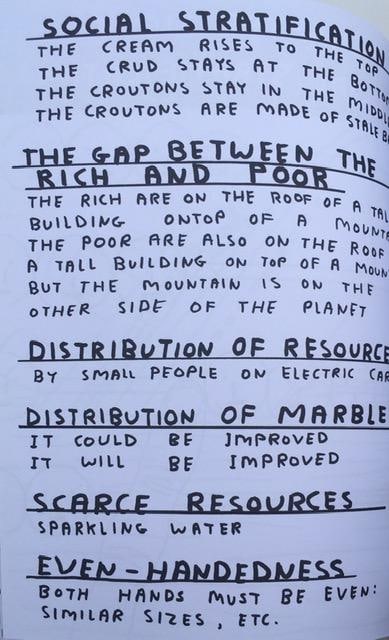 SOCIAL STRATIFICATION
THE CREAM RISES TO THE TOP
THE CRUD STAYS AT THE BOTTO
THE CROUTONS STAY IN THE MIDDL
THE CROUTONS ARE MADE OF STALE B
THE GAP BETWEEN THE
RICH AND POOR
THE RICH ARE ON THE ROOF OF A TAL
BUILDING ONTOP OF A MOUNTA
THE POOR ARE ALSO ON THE ROOF
A TALL BUILDING ON TOP OF A MOUN
BUT THE MOUNTAIN IS ON THE
OTHER SIDE OF THE PLANET
DISTRIBUTION OF RESOURCE
BY SMALL PEOPLE ON ELECTRIC CAR
DISTRIBUTION OF MARBLE
IT COULD BE IMPROVED
IT WILL BE IMPROVED
SCARCE RESOURCES
SPARKLING WATER
EVEN-HANDEDNESS
BOTH HANDS MUST BE EVEN:
SIMILAR SIZES, ETC.